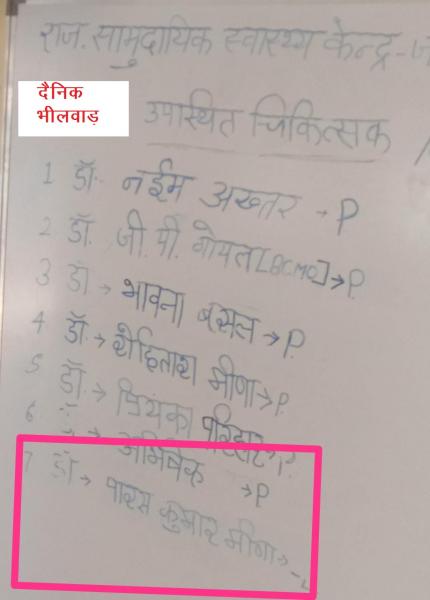 राज. सामुदायिक स्वास्थ्य केन्द्र -
दैनिक
भीलवाड़
उपस्थित चिकित्सक
1 डॉ. नईम अख्तर → P
2. डॉ. जी. पी. गोयल [BCMO] → P.
3 डॉ → भावना बंसल → P.
4 डॉ. → रोहिताश मीणा → P.
5 डॉ → प्रियंका परिहार → P.
6 डॉ → अभिषेक → P
7 डॉ → पारस कुमार मीणा →